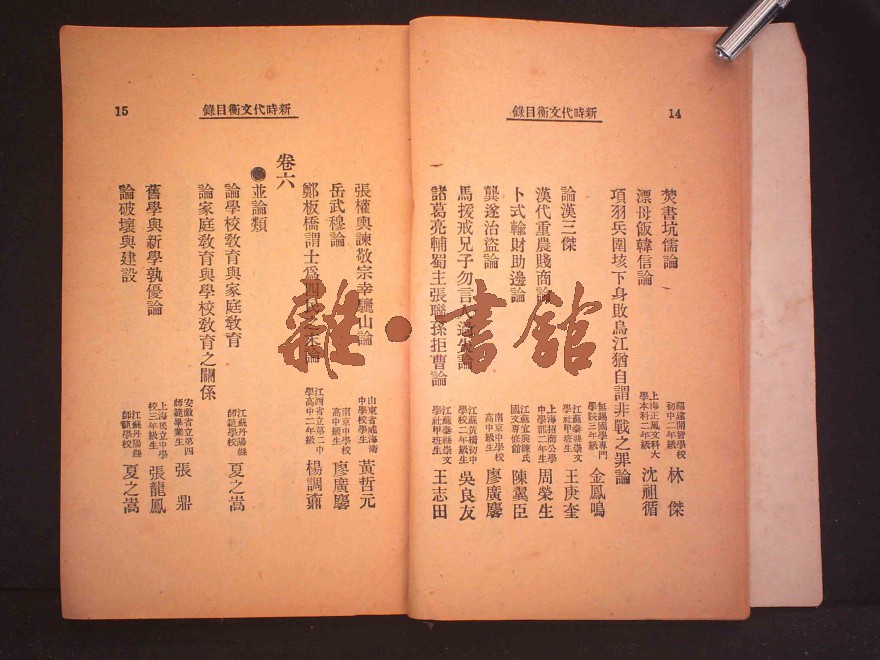 14
新時代文衡目錄
焚書坑儒論 福建開智學校初中二年級 林傑
漂母飯韓信論 上海正風文科大學本科二年級 沈祖循
項羽兵圍垓下身敗烏江猶自謂非戰之罪論 無錫國學專門學院三年級 金鳳鳴
論漢三傑 江蘇泰縣崇文學社甲班生 王庚奎
漢代重農賤商論 上海招商公學中學部二年生 周榮生
卜式輸財助邊論 江蘇宜興陳氏國文專修館 陳翼臣
龔遂治盜論 南京中學校高中級生 廖廣麐
馬援戒兄子勿言人過失論 江蘇黃橋初中學校二年級生 吳良友
諸葛亮輔蜀主張聯孫拒曹論 江蘇泰縣崇文學社甲班生 王志田
15
新時代文衡目錄
張權輿諫敬宗幸驪山論 山東省威海衛中學校學生 黃哲元
岳武穆論 南京中學校高中級生 廖廣麐
鄭板橋謂士爲四民之末論 江西省立第二中學高中二年級 楊調鼐
卷六
●並論類
論學校敎育與家庭敎育 江蘇丹陽縣師範學校 夏之嵩
論家庭敎育與學校敎育之關係 安徽省立第四師範畢業生 張鼎
舊學與新學孰優論 上海民立中學校三年級生 張龍鳳
論破壞與建設 江蘇丹陽縣師範學校 夏之嵩
雜·書館